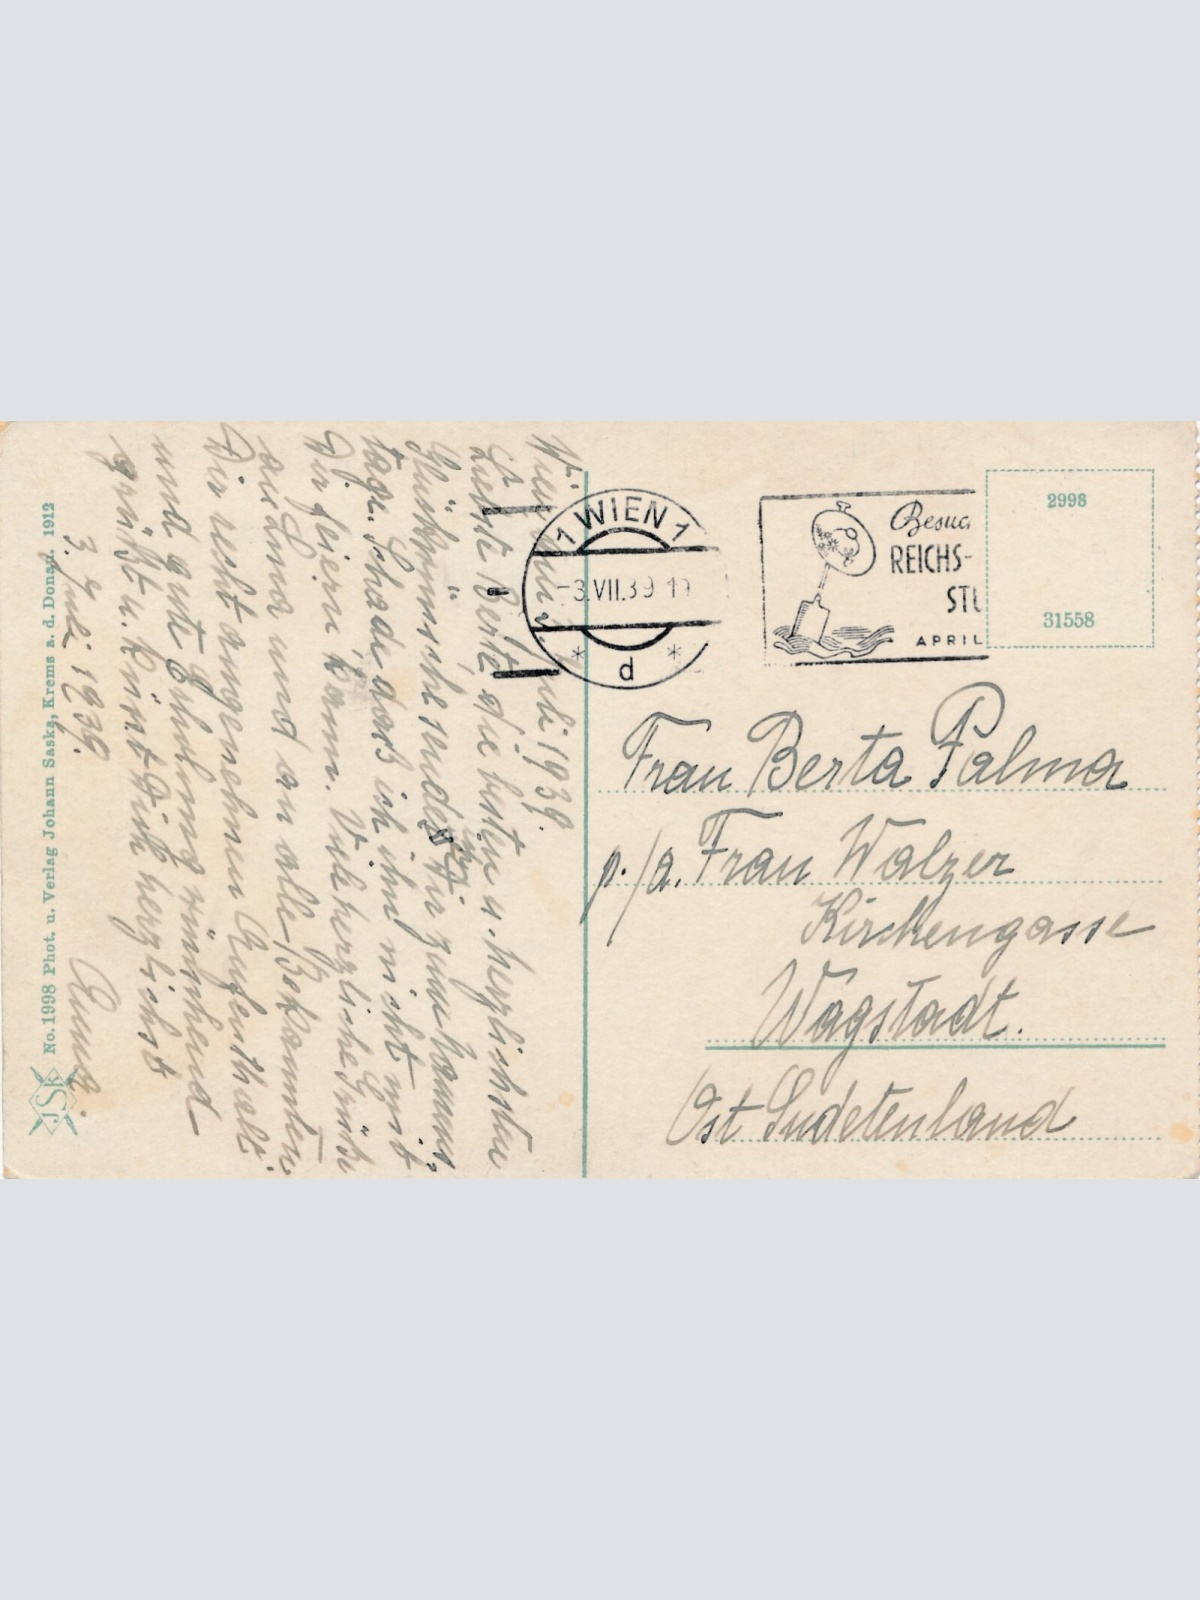 Wien am 3. Juli 1939.
Liebste Berta die besten u. herzlichsten
Glückwünsche sendet Dir zum Namens-
tage. Schade dass ich ihn nicht mit
Dir feiern kann. Viele herzliche Grüße
an Erna und an alle Bekannten
Dir recht angenehmen Aufenthalt
und gute Erholung wünschend
grüßt u. küsst Dich herzlichst
Anna.
3. Juli 1939.
No. 1998 Phot. u. Verlag Johann Saska, Krems a. d. Donau. 1912
JSK
1 WIEN 1
-3.VII.39
* d *
Besuc
REICHS-
STU
APRIL
2998
31558
Frau Berta Palma
p./a. Frau Walzer
Kirchengasse
Wagstadt.
Ost Sudetenland